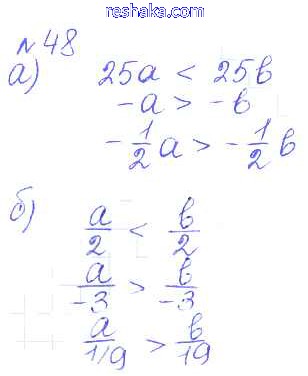 reshaka.com
№48
а) 25a < 25b
-a > -b
-1/2 a > -1/2 b
б) a/2 < b/2
a/-3 > b/-3
a/19 > b/19